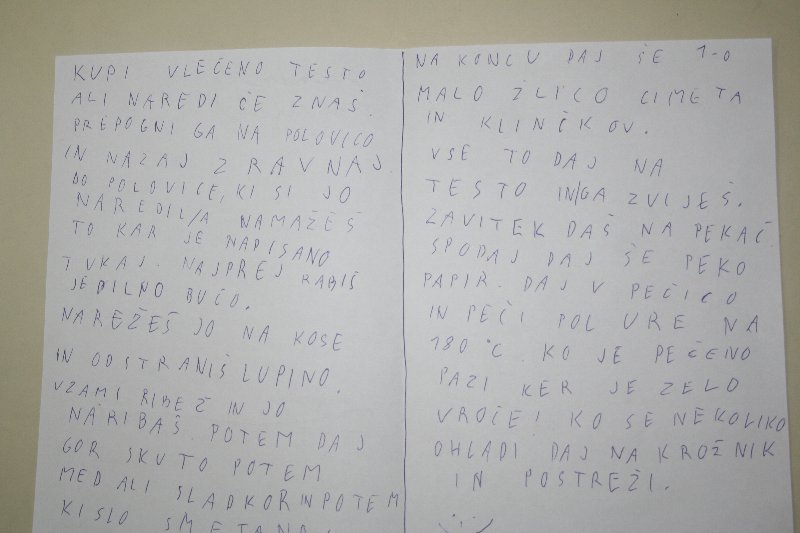 KUPI VLEČENO TESTO
ALI NAREDI ČE ZNAŠ.
PREPOGNI GA NA POLOVICO
IN NAZAJ ZRAVNAJ.
DO POLOVICE, KI SI JO
NAREDIL/A NAMAŽEŠ
TO KAR JE NAPISANO
TUKAJ. NAJPREJ RABIŠ
JEDILNO BUČO.
NAREŽEŠ JO NA KOSE
IN ODSTRANIŠ LUPINO.
VZAMI RIBEŽ IN JO
NARIBAŠ. POTEM DAJ
GOR SKUTO POTEM
MED ALI SLADKOR IN POTEM
KISLO SMETANO.
NA KONCU DAJ ŠE 1-0
MALO ŽLICO CIMETA
IN KLINČKOV.
VSE TO DAJ NA
TESTO IN GA ZVIJEŠ.
ZAVITEK DAŠ NA PEKAČ.
SPODAJ DAJ ŠE PEKO
PAPIR. DAJ V PEČICO
IN PEČI POL URE NA
180 °C. KO JE PEČENO
PAZI KER JE ZELO
VROČE! KO SE NEKOLIKO
OHLADI DAJ NA KROŽNIK
IN POSTREŽI.